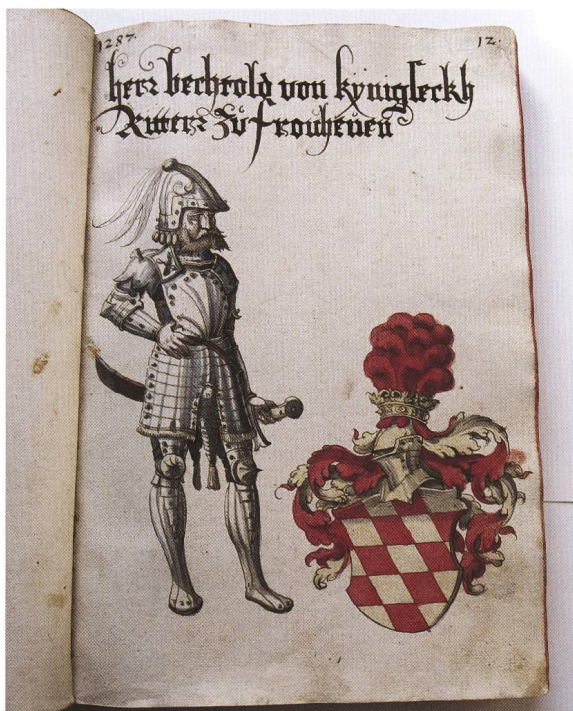 1287. 12.
herr bechtold von kynigseckh
Ritterr Zů fronheuen